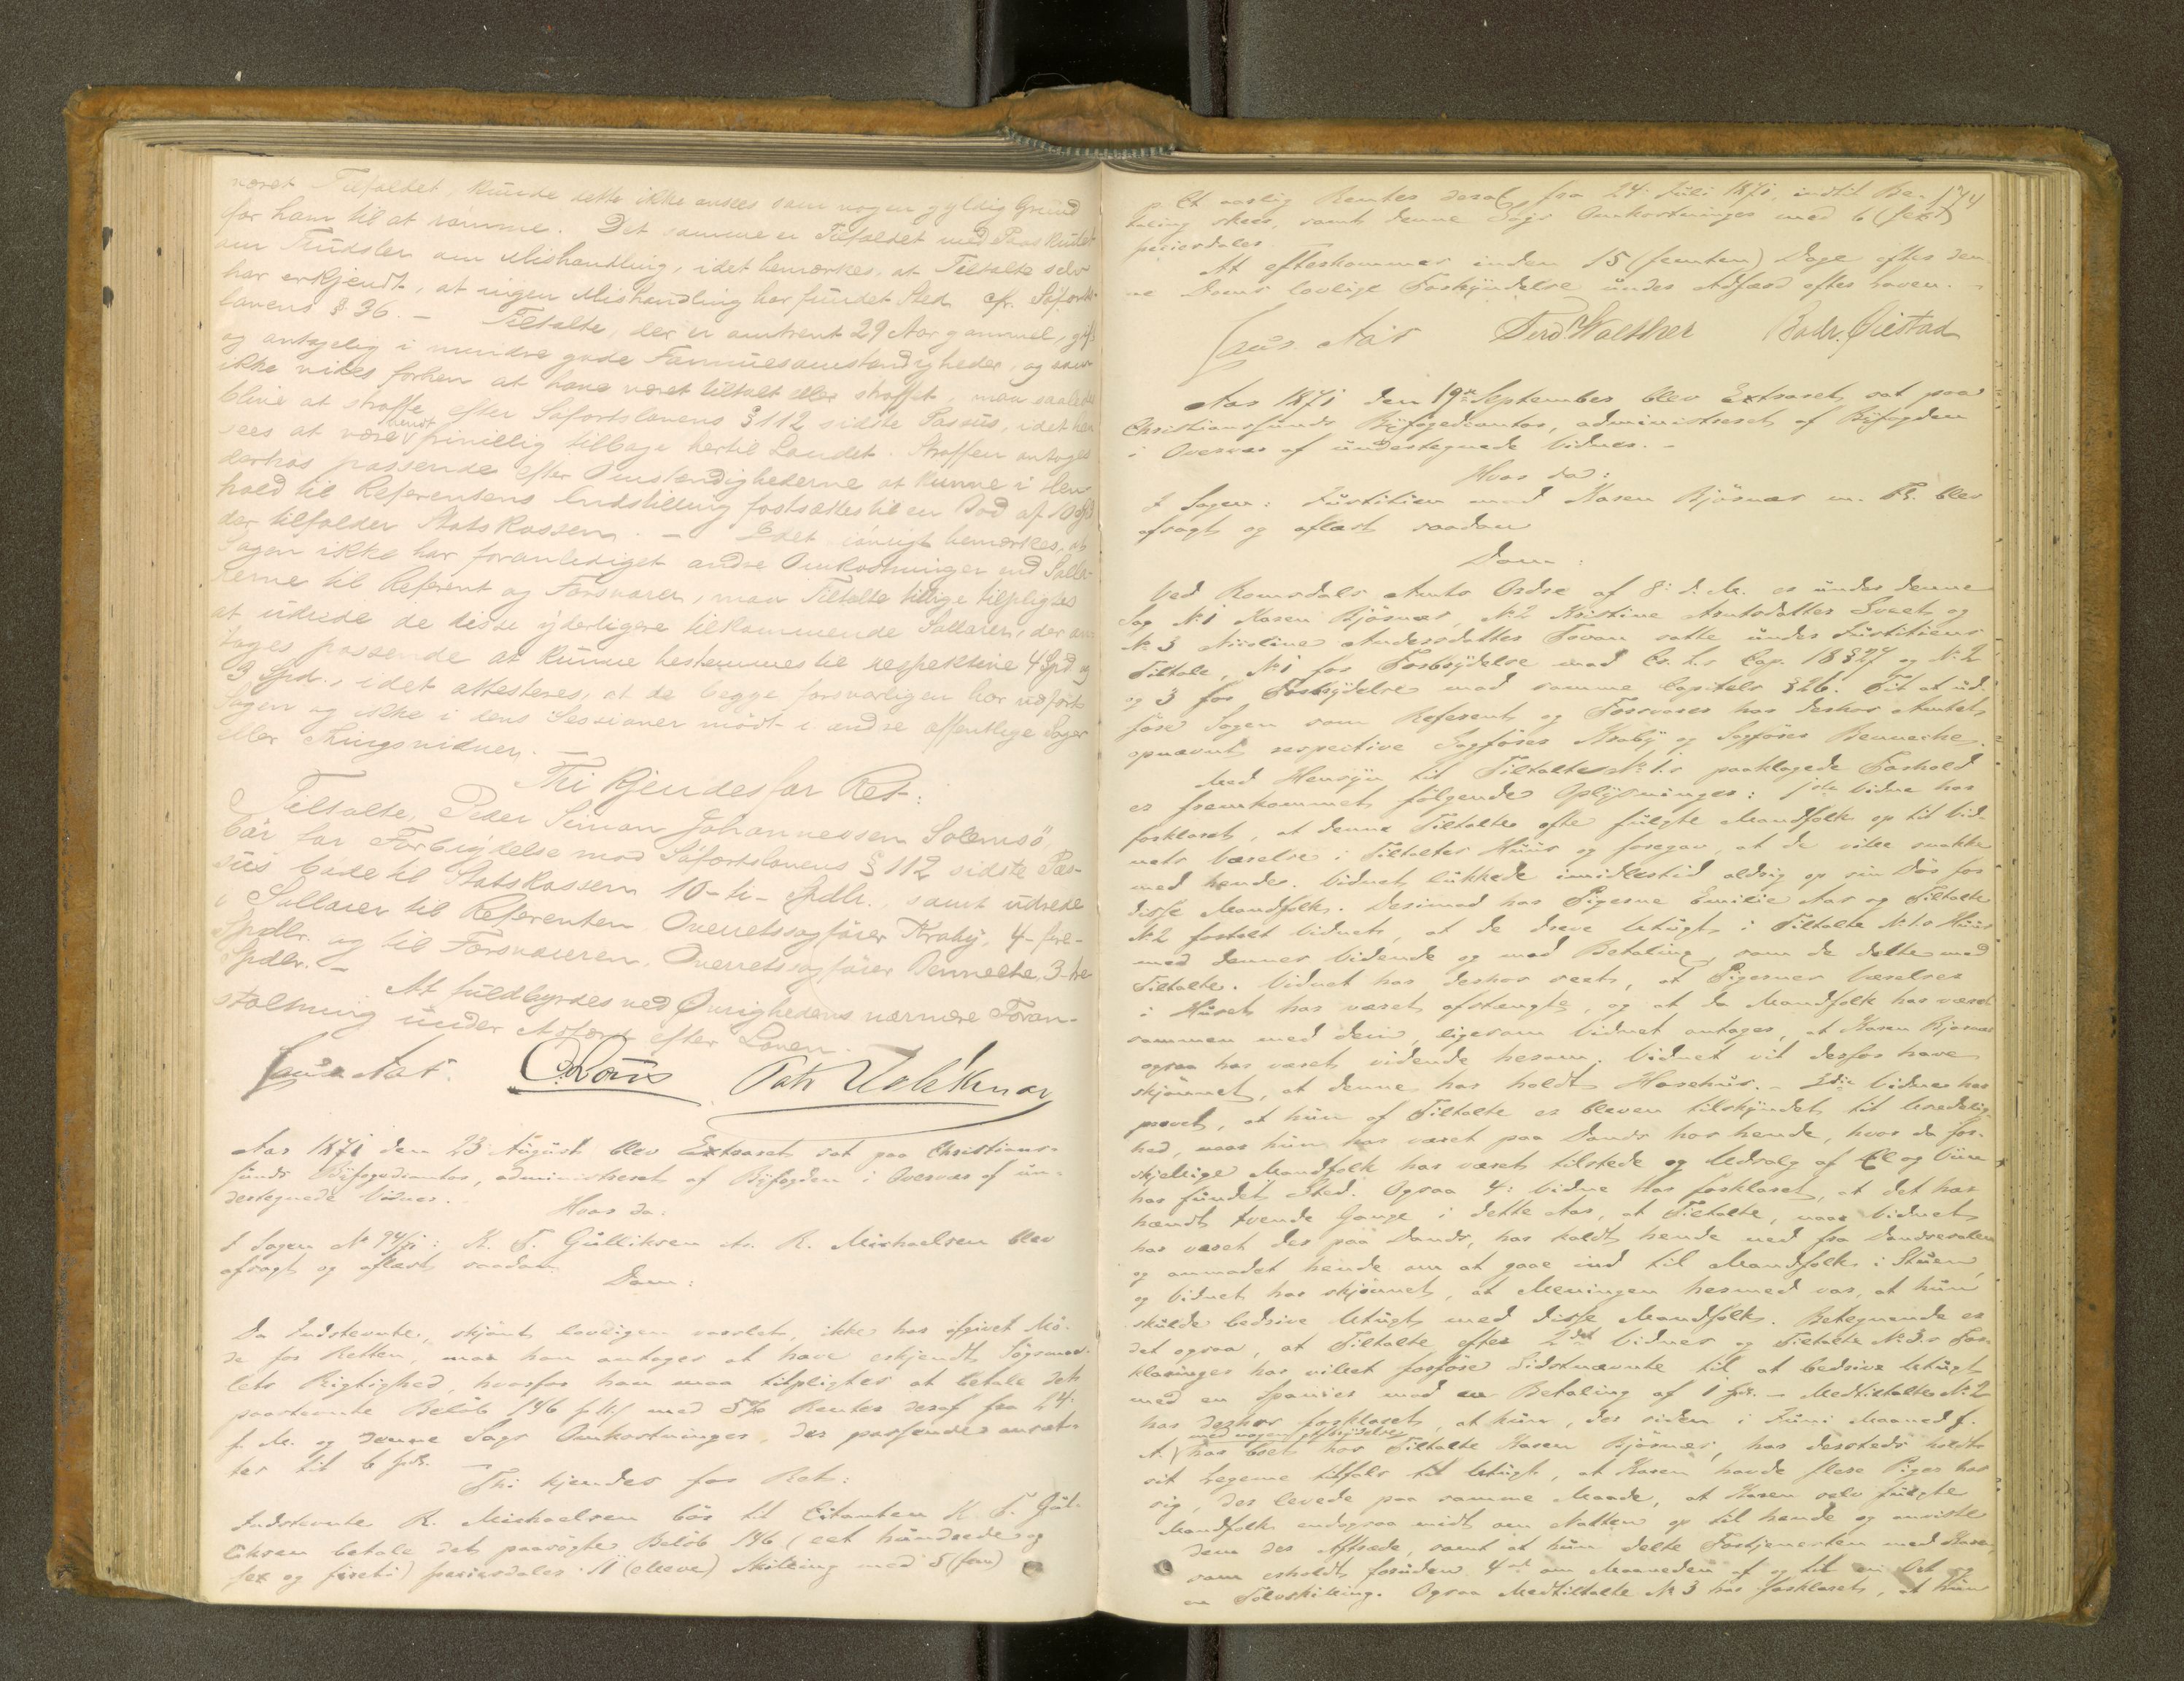 været Tilfældet, kunde dette ikke ansees som nogen gyldig Grund
for ham til at rømme. Det samme er Tilfældet med Paaskudet
om Trudsler om Mishandling, idet bemærkes, at Tiltalte selv
har erkjendt, at ingen Mishandling har fundet Sted cfr. Söfarts-
lovens § 36. — Tiltalte, der er omtrent 29 Aar gammel, gift
og antagelig i mindre gode Formuesomstændigheder, og som
ikke vides forhen at have været tiltalt eller straffet, maa saaledes
blive at straffe efter Söfartslovens § 112 sidste Passus, idet han
sees at være vendt frivillig tilbage hertil Landet. Straffen antages
derhos passende efter Omstændighederne at kunne i Hen-
hold til Referentens Indstilling fastsættes til en Bod af 10 Spd.
der tilfalder Statskassen. — Idet iövrigt bemærkes, at
Sagen ikke har foranlediget andre Omkostninger end Salla-
rerne til Referent og Forsvarer, maa Tiltalte tillige tilpligtes
at udrede de disse yderligere tilkommende Sallarer, der an-
tages passende at kunne bestemmes til respektive 4 Spd og
3 Spd., idet attesteres, at de begge forsvarligen har udfört
Sagen og ikke i dens Sessioner mödt i andre offentlige Sager
eller Thingsvidner. —
Thi kjendes for Ret:
Tiltalte, Peder Simon Johannessen Solemsö,
bör for Forbrydelse mod Söfartslovens § 112 sidste Pas-
sus böde til Statskassen 10 - ti - Spdlr. samt udrede
i Sallarer til Referenten Overretssagförer Kraby, 4 - fire -
Spdlr. og til Forsvareren, Overretssagförer Bennecke, 3 - tre
Spdlr. —
At fuldbyrdes ved Övrighedens nærmere Foran-
staltning under Adfærd efter Loven.
Aar 1871 den 23 August blev Extraret sat paa Christians-
sunds Byfogedkontor, administreret af Byfogden i Overvær af un-
dertegnede Vidner.
Hvor da:
I Sagen No 94/71: K. F. Gulliksen ctr. R. Michaelsen blev
afsagt og aflæst saadan
Dom:
Da Indstevnte, skjönt lovligen varslet, ikke har afgivet Mö-
de for Retten, maa han antages at have erkjendt Sögsmaa-
lets Rigtighed, hvorfor han maa tilpligtes at betale det
paastevnte Belöb 146 Spd 11 med 5% Renter deraf fra 24.
f. M. og denne Sags Omkostninger, der passende ansæt-
tes til 6 Spd. —
Thi kjendes for Ret:
Indstevnte R. Michaelsen bör til Citanten K. F. Gul-
liksen betale det paasögte Belöb 146 (eet hundrede og
sex og fireti) speciesdaler 11 (elleve) Skilling med 5 (fem)
174
p. Ct aarlig Renter deraf fra 24. Juli 1871, indtil Be-
taling skeer, samt denne Sags Omkostninger med 6 (sex)
speciesdaler.
At efterkommes inden 15 (femten) Dage efter den-
ne Doms lovlige Forkyndelse under Adfærd efter Loven. —
Ferd. Walther
Aar 1871 den 19de September blev Extraret sat paa
Christianssunds Byfogedkontor, administreret af Byfogden
i Overvær af undertegnede Vidner. —
Hvor da:
I Sagen: Justitien mod Karen Bjösnes m. Fl. blev
afsagt og aflæst saadan
Dom:
Ved Romsdals Amts Ordre af 8. d. M. er under denne
Sag No 1 Karen Bjösnes, No 2 Kristine Arntsdatter og
No 3 Andersdatter satte under Justitiens
Tiltale, No 1 for Forbrydelse mod Cr. L.s Cap. 18 § 27 og No 2
og 3 for Forbrydelse mod samme Capitels § 26. Til at ud-
före Sagen som Referent og Forsvarer har derhos Amtet
opnævnt respective Sagförer Kraby og Sagförer Bennecke.
Med Hensyn til Tiltalte No 1.s paaklagede Forhold
er fremkommet fölgende Oplysninger: 1ste Vidne har
forklaret, at denne Tiltalte ofte fulgte Mandfolk op til Vid-
nets Værelse i Tiltaltes Huus og foregav, at de vilde snakke
med hende. Vidnet lukkede imidlertid aldrig op sin Dör for
disse Mandfolk. Derimod har Pigerne Emilie Aar og Tiltalte
No 2 fortalt Vidnet, at de drev Utugt i Tiltalte No 1.s Huus
med dennes Vidende og mod Betaling, som de delte med
Tiltalte. Vidnet har derhos seet, at Pigernes Værelser
i Huset har været afstængte, og at da Mandfolk har været
sammen med dem, ligesom Vidnet antager, at Karen Bjösnes
ogsaa har været vidende herom. Vidnet vil derfor have
skjönnet, at denne har holdt Horehuus. — 2det Vidne har
prövet, at hun af Tiltalte er bleven tilskyndet til Usædelig-
hed, naar hun har været paa Dands hos hende, hvor da for-
skjellige Mandfolk har været tilstede og Udsalg af Öl og Viin
har fundet Sted. Ogsaa 4. Vidne har forklaret, at det har
hændt tvende Gange i dette Aar, at Tiltalte, naar Vidnet
har været der paa Dands, har kaldt hende ned fra Dandsesalen
og anmodet hende om at gaae ind til Mandfolk i Stuen,
og Vidnet har skjönnet, at Meningen hermed var, at hun
skulde bedrive Utugt med disse Mandfolk. Betegnende er
det ogsaa, at Tiltalte efter 2det Vidnes og Tiltalte No 3.s For-
klaringer har villet forföre Sidstnævnte til at bedrive Utugt
med en Spanier mod en Betaling af 1 Spd. — Medtiltalte No 2
har derhos forklaret, at hun, der siden i Juni Maaned f.
A. med nogen Afbrydelse har boet hos Tiltalte Karen Bjösnes, har dersteds holdt
sit Legeme tilfals til Utugt, at Karen havde flere Piger hos
sig, der levede paa samme Maade, at Karen selv fulgte
Mandfolk endogsaa midt om Natten op til hende og anviste
dem der Aftræde, samt at hun delte Fortjenesten med Karen,
som erholdt foruden 4 om Maaneden af og til en Ort og
en Sölvskilling. Ogsaa Medtiltalte No 3 har forklaret, at hun